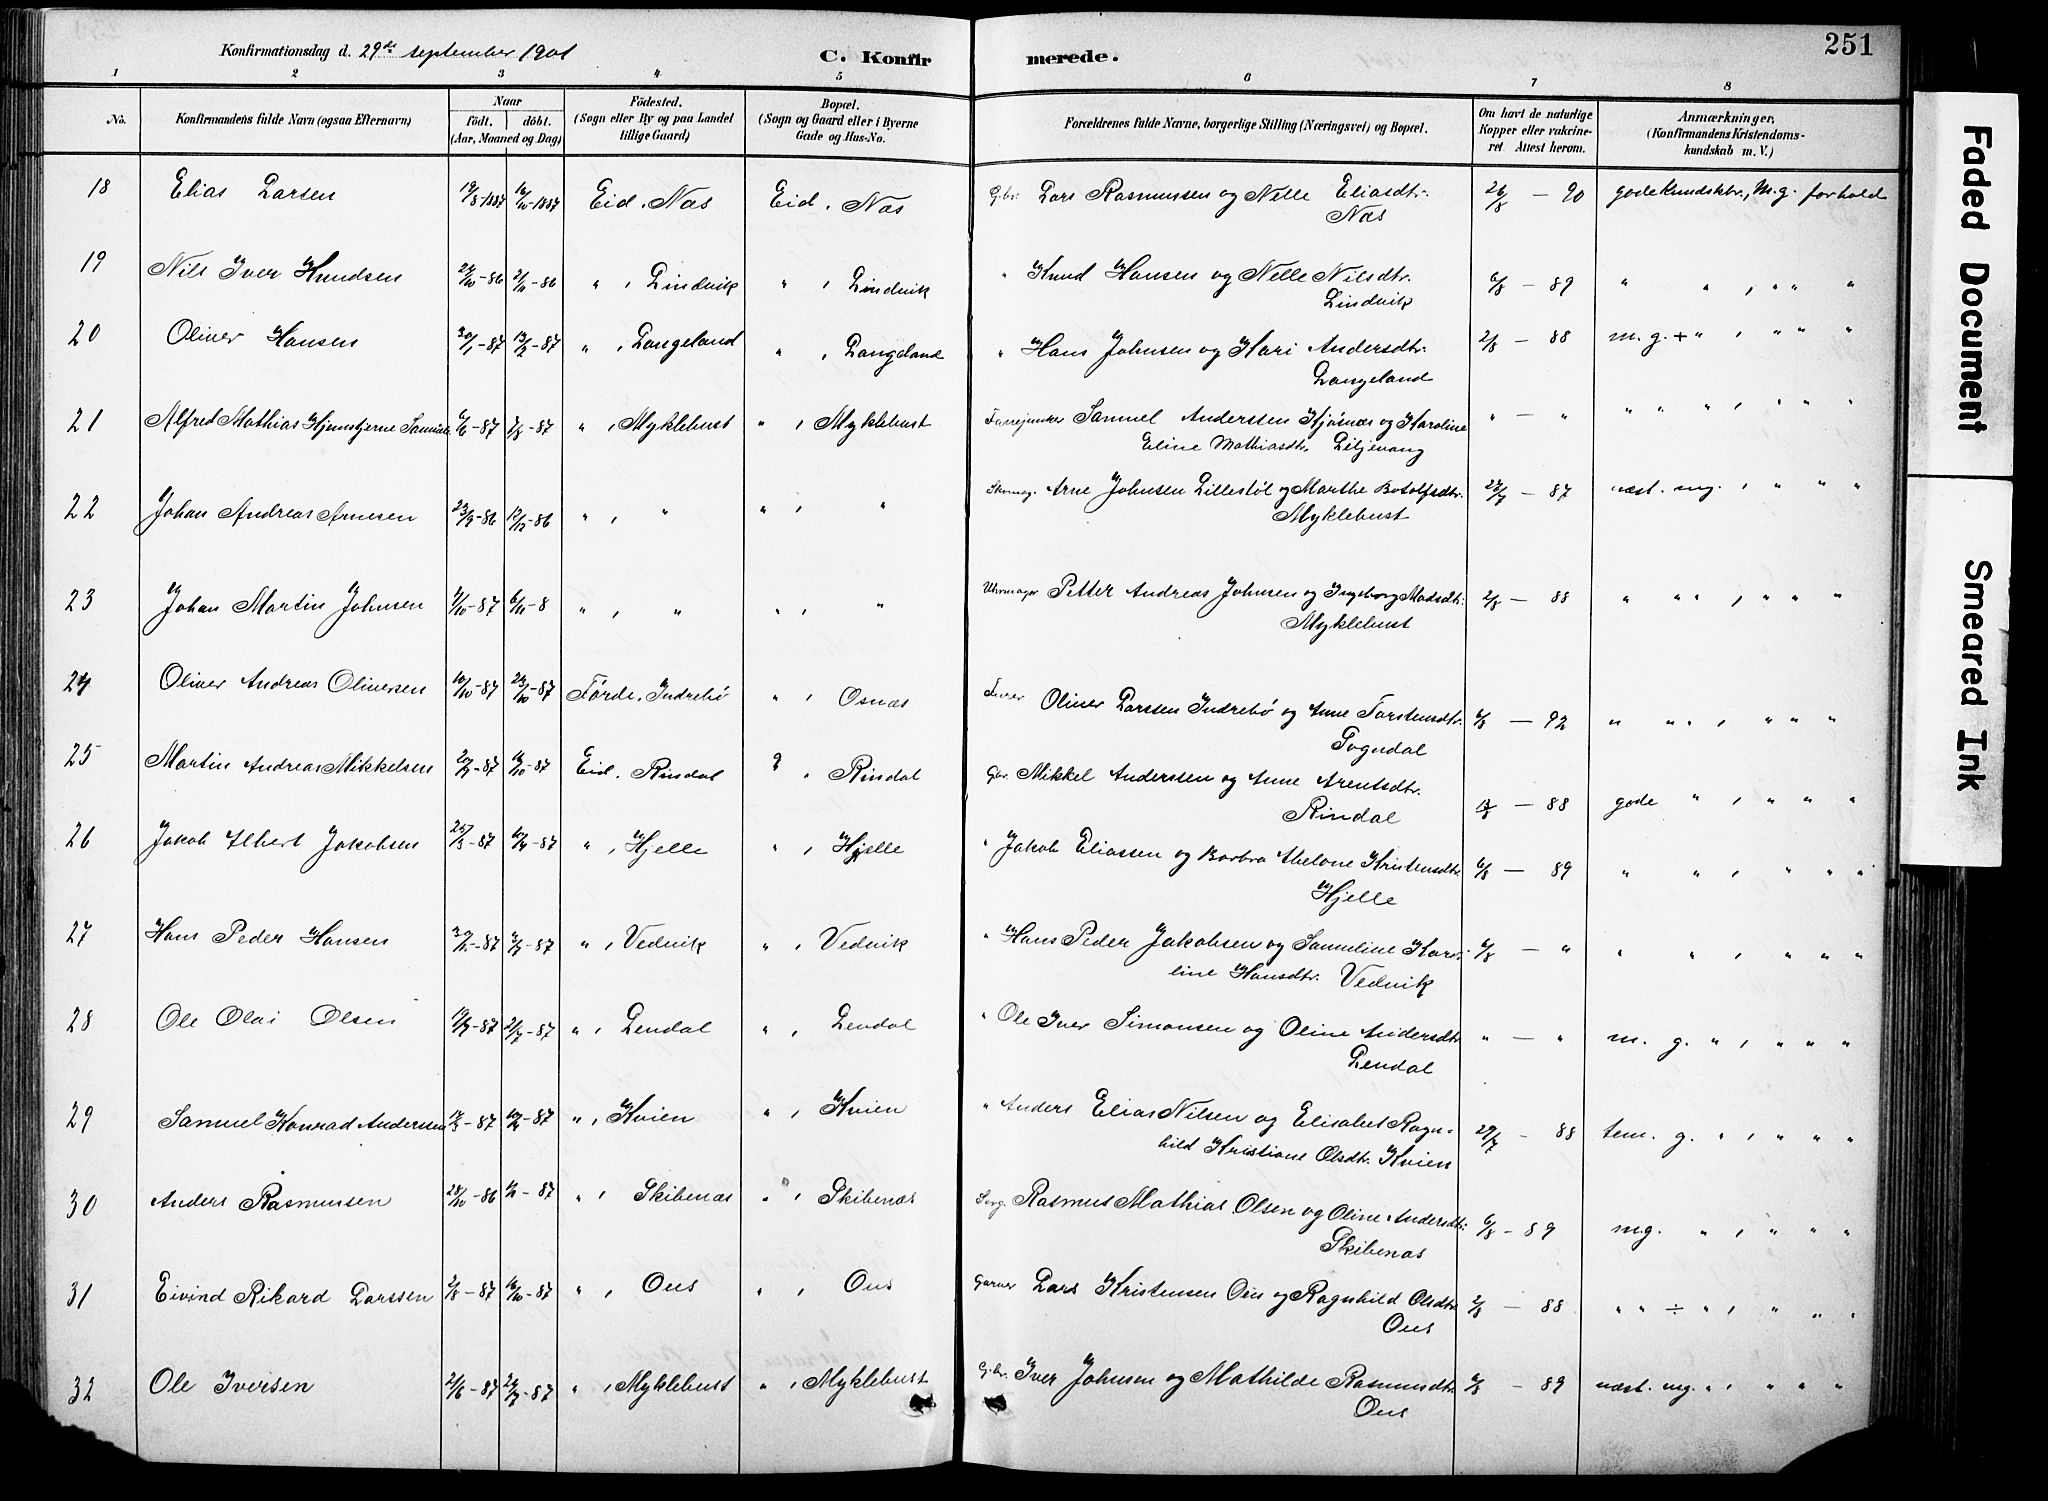 251
Konfirmationsdag d. 29de September 1901
C. Konfirmerede.
1 2 3 4 5 6 7 8
No. Konfirmandens fulde Navn (ogsaa Efternavn) Naar födt. döbt. (Aar, Maaned og Dag) Födested. (Sogn eller By og paa Landet tillige Gaard) Bopæl. (Sogn og Gaard eller i Byerne Gade og Hus-No. Forældrenes fulde Navne, borgerlige Stilling (Næringsvei) og Bopæl. Om havt de naturlige Kopper eller vakcineret Attest herom. Anmærkninger, (Konfirmandens Kristendomskundskab m. V.)
18 Elias Larsen 19/8-1887 16/10-1887 Eid, Næs Eid, Næs Gbr. Lars Rasmussen og Nelle Eliasdtr. 26/8 - 90 gode kundskbr., M.g. forhold
Næs
19 Nils Iver Knudsen 24/10-86 21/11-86 " , Lindvik " , Lindvik " Knud Hansen og Nelle Nilsdtr. 6/8 - 89 " " , " " "
Lindvik
20 Oliver Hansen 30/1-87 13/2-87 " , Langeland " , Langeland " Hans Johnsen og Kari Andersdtr. 2/8 - 88 m. g. + " , " " "
Langeland
21 Alfred Mathias Hjemstjerne 6/6-87 7/8-87 " , Myklebust " , Myklebust Samuel Anderssen Hjøsnæs og Karoline " - " " " " , " " "
Eline Mathiasdtr. Liljevang
22 Johan Andreas Arnesen 23/9-86 12/12-86 " , " " , " Skomag. Arne Johnsen Lillestøl og Marthe Botolfsdtr. 27/7 - 87 næst. mg. , " " "
Myklebust
23 Johan Martin Johnsen 9/10-87 6/11-8 " , " " , " Uhrmager Petter Andreas Johnsen og Ingeborg Madsdtr. 2/8 - 88 " " " , " " "
Myklebust
24 Oliver Andreas Oliversen 10/10-87 23/10-87 Førde, Indrebø " , Osnæs Oliver Larssen Indrebø og Anne Torstensdtr. 6/8 - 92 " " " , " " "
Sogndal
25 Martin Andreas Mikkelsen 16/10-87 Eid, Rindal " , Rindal Gbr. Mikkel Anderssen og Anne Arentsdtr. 88 gode " , " " "
Rindal
26 Jakob Albert Jakobsen 25/3-87 10/4-87 " , Hjelle " , Hjelle " Jakob Eliassen og Barbra Abelone Kristensdtr. 6/8 - 89 " " , " " "
Hjelle
27 Hans Peder Hansen " , Vedvik " , Vedvik " Hans Peder Jakobsen og Samueline Karo- 6/8 - " " " , " " "
line Hansdtr. Vedvik
28 Ole Olai Olsen " , Lendal " , Lendal " Ole Iver Simonsen og Oline Andersdtr. " - " m. g. " , " " "
Lendal
29 Samuel Konrad Anderssen 12/3-87 10/4-87 " , Kvien " , Kvien " Anders Elias Nilsen og Elisabet Ragn- 29/7 - 88 tem. g. " , " " "
hild Kristiane Olsdtr. Kvien
30 Anders Rasmussen 28/10-86 1/1-87 " , Skibenæs " , Skibenæs Rasmus Mathias Olsen og Oline Andersdtr. 6/8 - 89 m.g. " , " " "
Skibenæs
31 Eivind Rikard Larssen 2/8-87 16/10-87 " , Ous " , Ous Garver Lars Kristensen Ous og Ragnhild Olsdtr. 2/8 - 88 " " ÷ " , " " "
Ous
32 Ole Iversen 21/6-87 24/7-87 " , Myklebust " , Myklebust Gbr. Iver Johnsen og Mathilde Rasmusdtr. 6/8 - 89 næst. mg. " , " " "
Ous
Faded Document
Smeared Ink